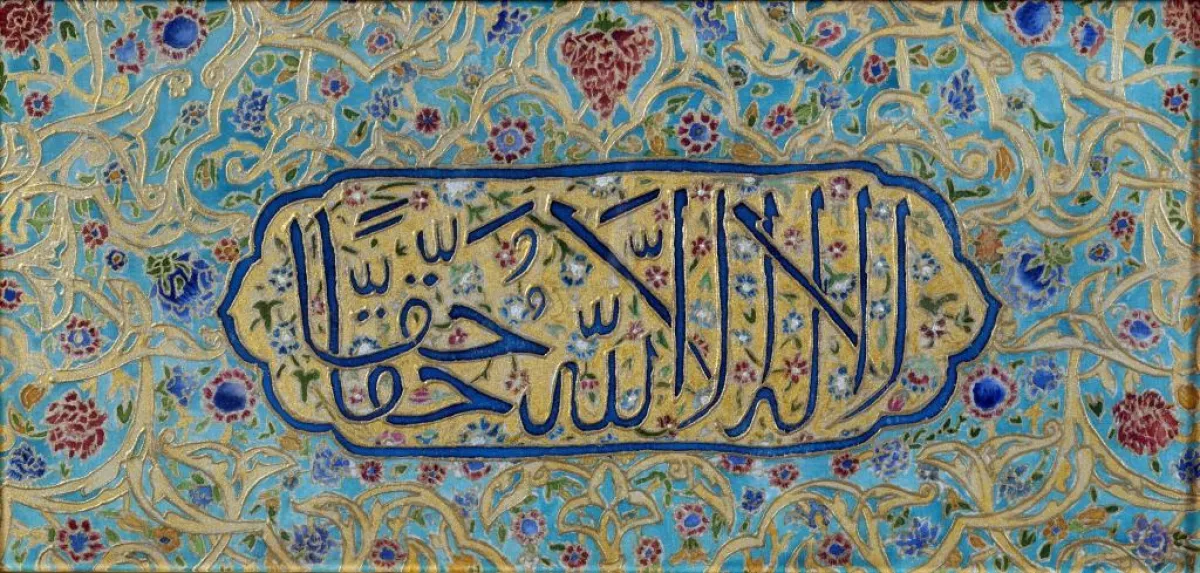 لا إله إلا الله حقًّا حقًّا